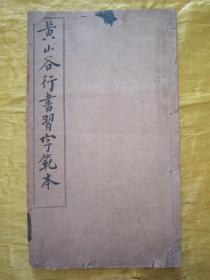 黄山谷行書習字範本